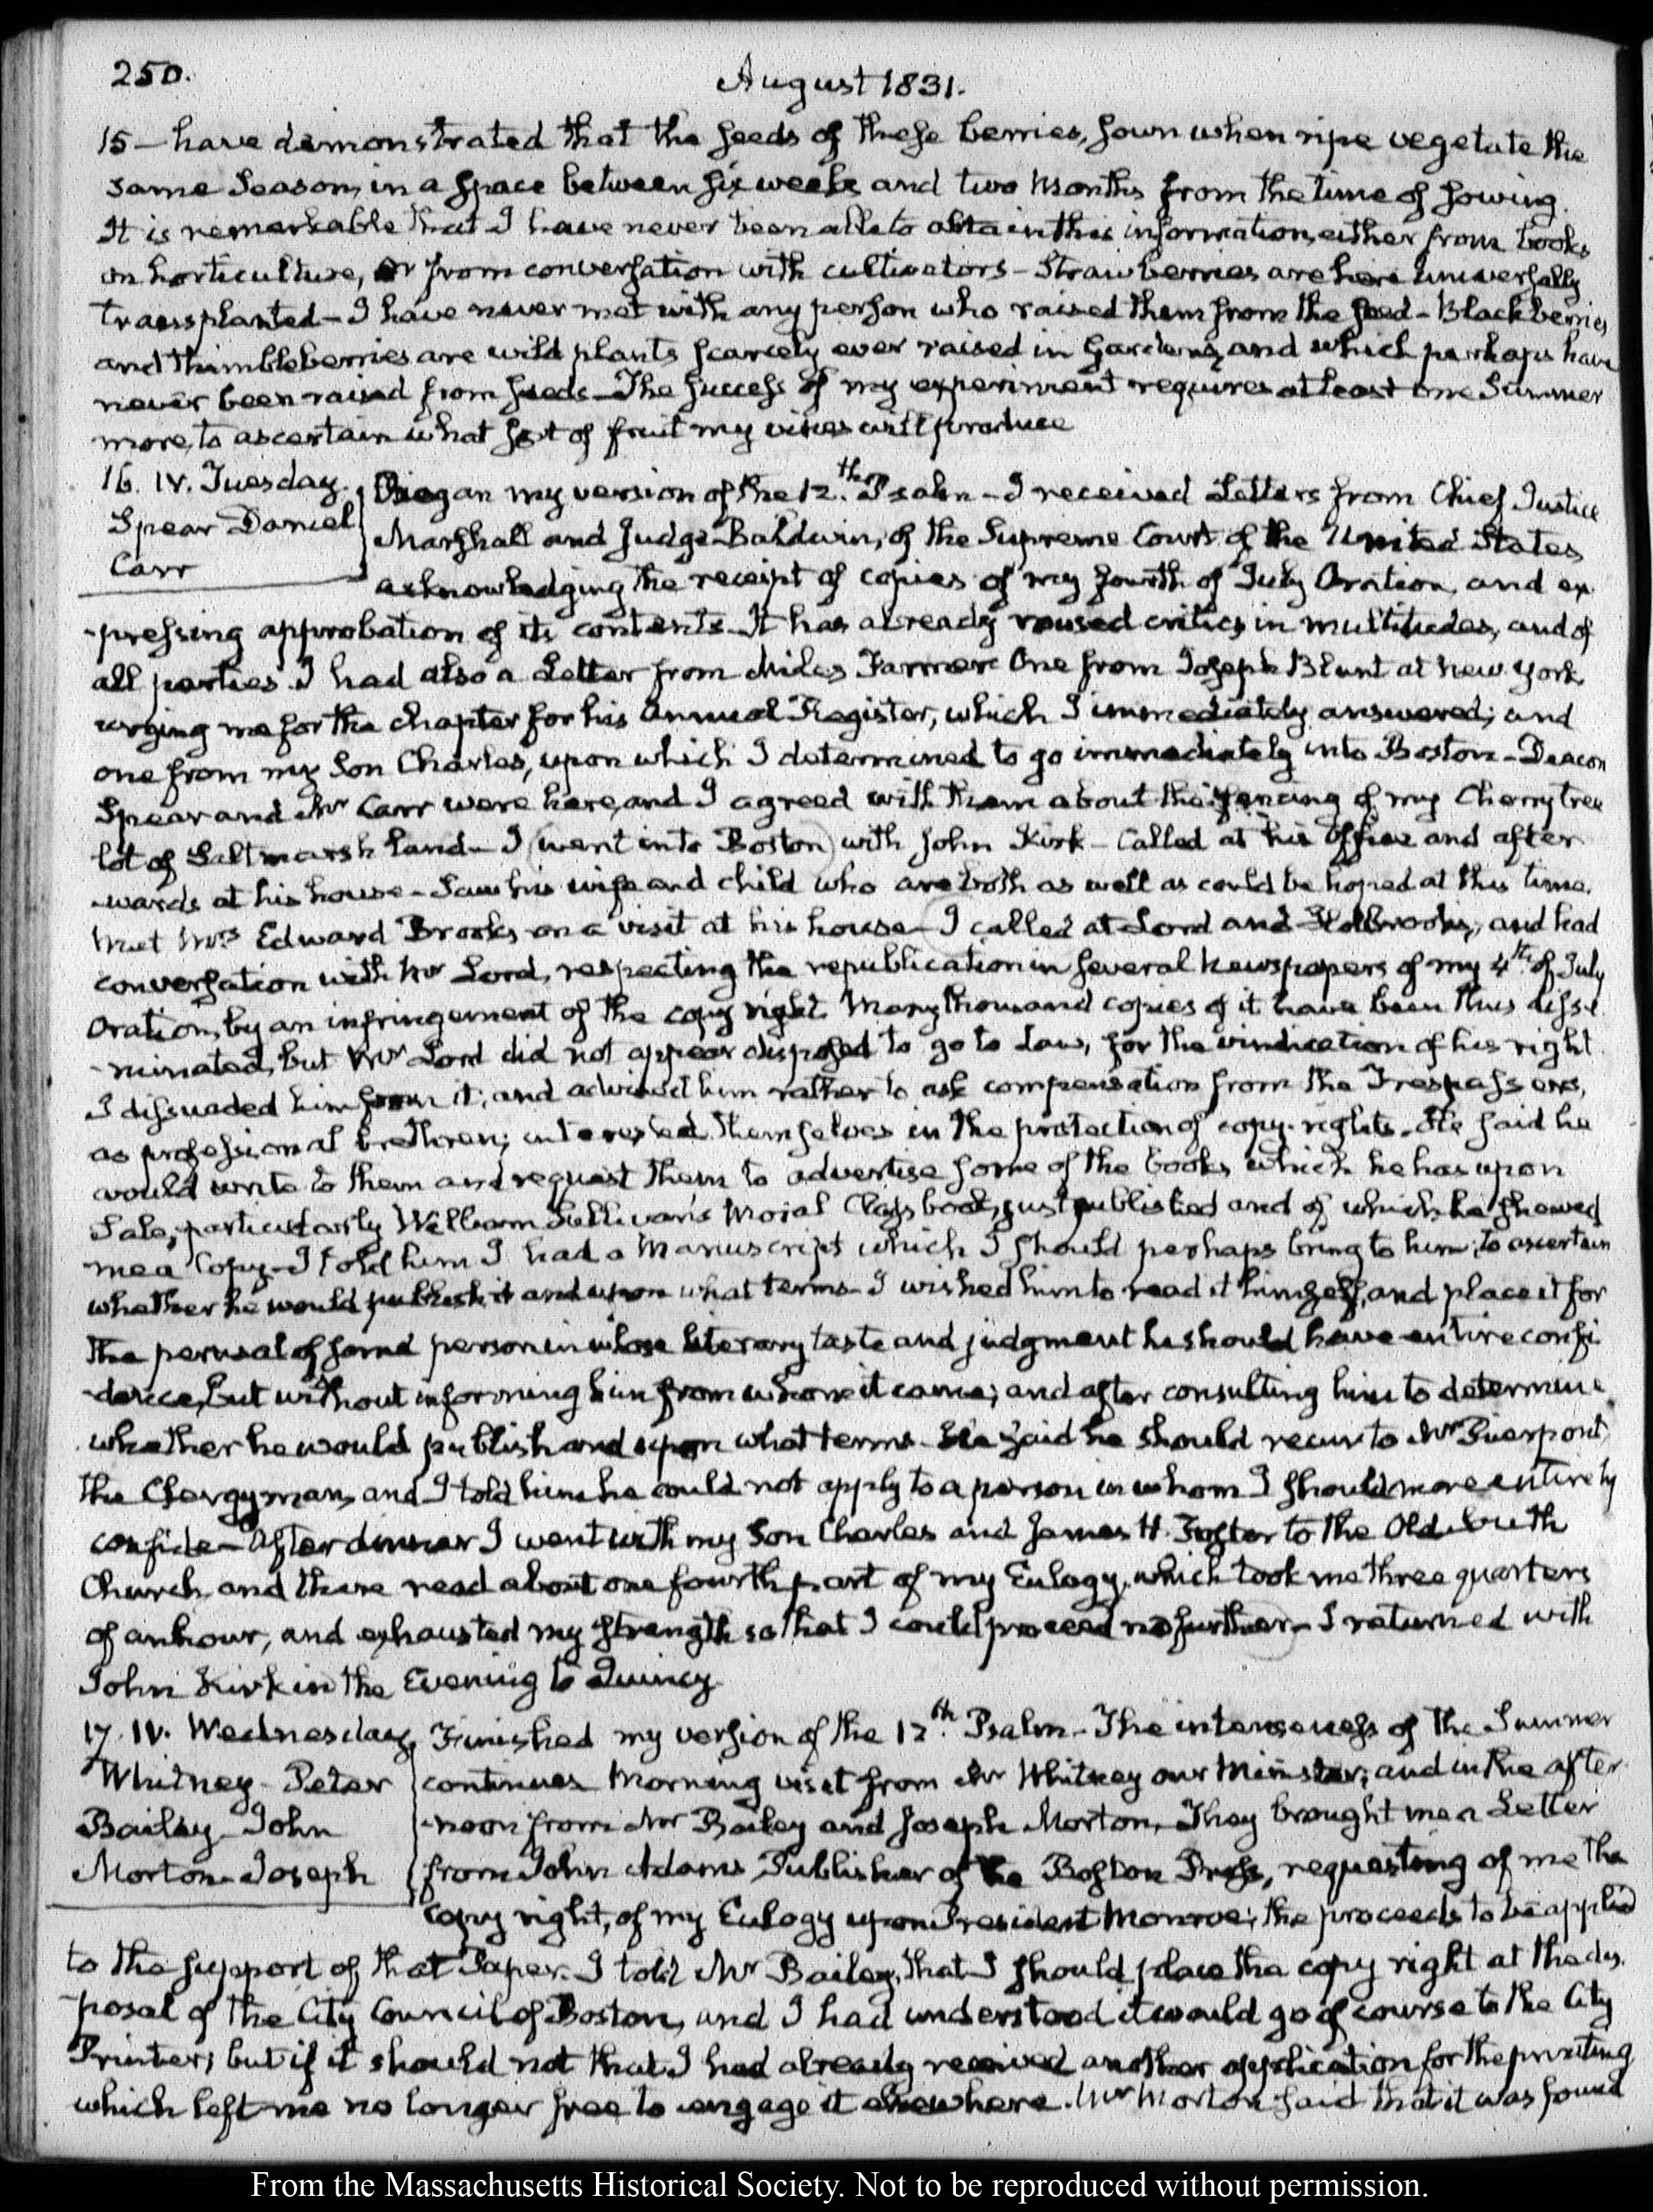 250.
August 1831.
15 — have demonstrated that the seeds of these berries, sown when ripe vegetate the
same Season, in a space between six weeks and two Months from the time of sowing.
It is remarkable that I have never been able to obtain this information, either from books
on horticulture, or from conversation with cultivators – Strawberries are here universally
transplanted – I have never met with any person who raised them from the seed – Blackberries
and thimbleberries are wild plants scarcely ever raised in Gardens, and which perhaps have
never been raised from seeds – The success of my experiment requires at least one Summer
more, to ascertain what sort of fruit my vines will produce
16. IV. Tuesday.
Spear Daniel
Carr
Began my version of the 12.th Psalm – I received Letters from Chief Justice
Marshall and Judge Baldwin, of the Supreme Court of the United States
acknowledging the receipt of copies of my fourth of July Oration, and ex
-pressing approbation of its contents. It has already roused critics in multitudes, and of
all parties. I had also a Letter from Miles Farmer One from Joseph Blunt at New York,
urging me for the chapter for his Annual Register, which I immediately answered; and
one from my Son Charles, upon which I determined to go immediately into Boston – Deacon
Spear and Mr Carr were here, and I agreed with them about the fencing of my Cherry tree
lot of Salt marsh land – I went into Boston with John Kirk – Called at his Office and after
-wards at his house – Saw his wife and child who are both as well as could be hoped at this time.
Met Mrs Edward Brooks, on a visit at his house – I called at Lord and Holbrook's, and had
conversation with Mr Lord, respecting the republication in several Newspapers of my 4th of July
Oration, by an infringement of the copy right. Many thousand copies of it have been thus disse
-minated, but Mr Lord did not appear disposed to go to Law, for the vindication of his right
I dissuaded him from it; and advised him rather to ask compensation from the Trespassers,
as professional brethren; interested themselves in the protection of copy-rights. He said he
would write to them and request them to advertise some of the books which he has upon
Sale, particularly William Sullivan's Moral Class book, just published and of which he showed
me a Copy – I told him I had a Manuscript which I should perhaps bring to him; to ascertain
whether he would publish it and upon what terms – I wished him to read it himself, and place it for
the perusal of some person in whose literary taste and judgment he should have entire confi
-dence, but without informing him from whom it came; and after consulting him to determine
whether he would publish and upon what terms. He said he should recur to Mr Pierpont,
the Clergyman, and I told him he could not apply to a person in whom I should more entirely
confide – After dinner I went with my Son Charles and James H. Foster to the Old South
Church, and there read about one fourth part of my Eulogy, which took me three quarters
of an hour, and exhausted my strength so that I could proceed no further – I returned with
John Kirk in the Evening to Quincy.
17. IV. Wednesday,
Whitney – Peter
Bailey – John
Morton – Joseph
Finished my version of the 12.th Psalm – The intenseness of the Summer
continues Morning visit from Mr Whitney our Minister; and in the after
-noon from Mr Bailey and Joseph Morton, They brought me a Letter
from John Adams Publisher of the Boston Press, requesting of me the
copy right, of my Eulogy upon President Monroe; the proceeds to be applied
to the support of that Paper. I told Mr Bailey, that I should place the copy right at the dis.
-posal of the City Council of Boston, and I had understood it would go of course to the City
Printer; but if it should not that I had already received another application for the printing
which left me no longer free to engage it elsewhere. Mr Morton said that it was found
From the Massachusetts Historical Society. Not to be reproduced without permission.